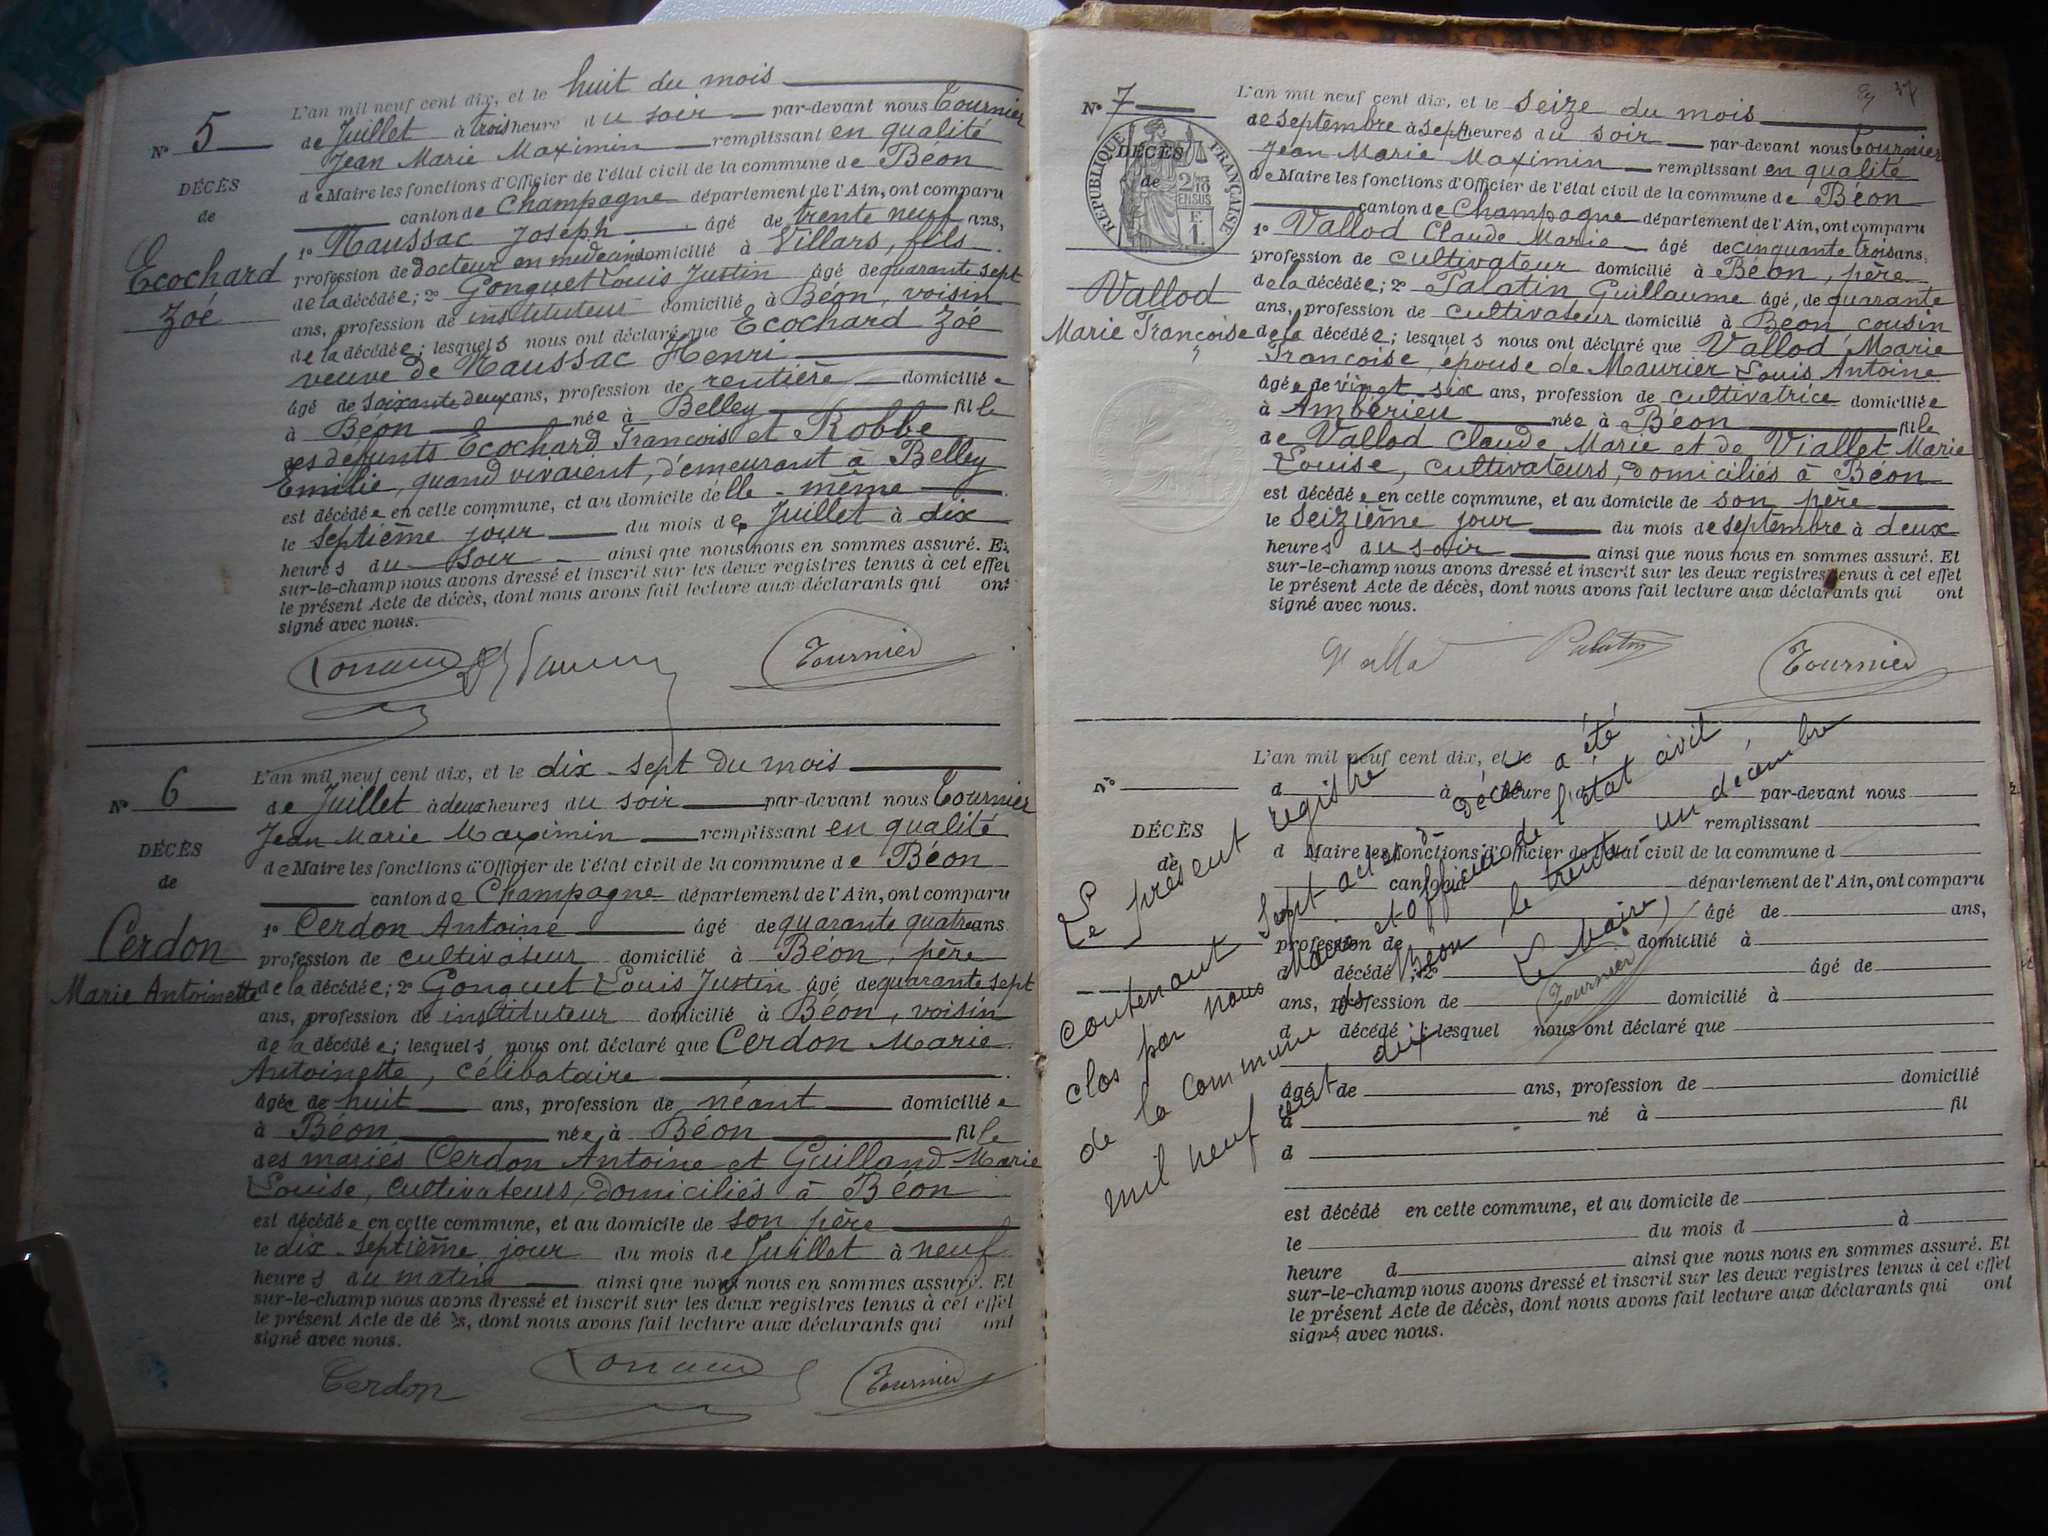 N° 5
DÉCÈS
de
Ecochard
Zoé
L'an mil neuf cent dix, et le huit du mois
de Juillet à trois heure du soir par-devant nous Tournier
Jean Marie Maximin remplissant en qualité
de Maire les fonctions d'Officier de l'état civil de la commune de Béon
canton de Champagne département de l'Ain, ont comparu
1° Maussac Joseph âgé de trente neuf ans,
profession de docteur en medecine domicilié à Villars, fils
de la décédée; 2° Gonguet Louis Justin âgé de quarante sept
ans, profession de instituteur domicilié à Béon, voisin
de la décédée; lesquels nous ont déclaré que Ecochard Zoé
veuve de Maussac Henri
âgé de soixante deux ans, profession de rentière domiciliée
à Béon née à Belley fille
des defunts Ecochard François et Robbe
Emilie, quand vivaient, demeurant à Belley
est décédée en cette commune, et au domicile delle-même
le septième jour du mois de Juillet à dix
heures du soir ainsi que nous nous en sommes assuré. Et
sur-le-champ nous avons dressé et inscrit sur les deux registres tenus à cet effet
le présent Acte de décès, dont nous avons fait lecture aux déclarants qui ont
signé avec nous.
Tournier
N° 6
DÉCÈS
de
Cerdon
Marie Antoinette
L'an mil neuf cent dix, et le dix-sept du mois
de Juillet à deux heures du soir par-devant nous Tournier
Jean Marie Maximin remplissant en qualité
de Maire les fonctions d'Officier de l'état civil de la commune de Béon
canton de Champagne département de l'Ain, ont comparu
1° Cerdon Antoine âgé de quarante quatre ans
profession de cultivateur domicilié à Béon, père
de la décédée; 2° Gonguet Louis Justin âgé de quarante sept
ans, profession de instituteur domicilié à Béon, voisin
de la décédée; lesquels nous ont déclaré que Cerdon Marie
Antoinette, célibataire
âgée de huit ans, profession de néant domiciliée
à Béon née à Béon fille
des mariés Cerdon Antoine et Guilland Marie
Louise, cultivateurs, domiciliés à Béon
est décédée en cette commune, et au domicile de son père
le dix-septième jour du mois de Juillet à neuf
heures du matin ainsi que nous nous en sommes assuré. Et
sur-le-champ nous avons dressé et inscrit sur les deux registres tenus à cet effet
le présent Acte de décès, dont nous avons fait lecture aux déclarants qui ont
signé avec nous.
Cerdon Tournier
37
N° 7
DÉCÈS
de
RÉPUBLIQUE FRANÇAISE
2/10 EN SUS
Vallod
Marie Françoise
L'an mil neuf cent dix, et le seize du mois
de septembre à sept heures du soir par-devant nous Tournier
Jean Marie Maximin remplissant en qualité
de Maire les fonctions d'Officier de l'état civil de la commune de Béon
canton de Champagne département de l'Ain, ont comparu
1° Vallod Claude Marie âgé de cinquante trois ans,
profession de cultivateur domicilié à Béon, père
de la décédée; 2° Palatin Guillaume âgé, de quarante
ans, profession de cultivateur domicilié à Béon cousin
de la décédée; lesquels nous ont déclaré que Vallod Marie
Françoise, épouse de Maurier Louis Antoine
âgée de vingt-six ans, profession de cultivatrice domiciliée
à Ambérieu née à Béon fille
de Vallod Claude Marie et de Viallet Marie
Louise, cultivateurs, domiciliés à Béon
est décédée en cette commune, et au domicile de son père
le seizième jour du mois de septembre à deux
heures du soir ainsi que nous nous en sommes assuré. Et
sur-le-champ nous avons dressé et inscrit sur les deux registres tenus à cet effet
le présent Acte de décès, dont nous avons fait lecture aux déclarants qui ont
signé avec nous.
Tournier
N°
DÉCÈS
de
L'an mil neuf cent dix, et le
d à heure d par-devant nous
remplissant
d Maire les fonctions d'Officier de l'état civil de la commune d
canton d département de l'Ain, ont comparu
1° âgé de ans,
profession de domicilié à
d décédé ; 2° âgé de
ans, profession de domicilié à
d décédé ; lesquel nous ont déclaré que
âgé de ans, profession de domicilié
à né à fil
d
est décédé en cette commune, et au domicile de
le du mois d à
heure d ainsi que nous nous en sommes assuré. Et
sur-le-champ nous avons dressé et inscrit sur les deux registres tenus à cet effet
le présent Acte de décès, dont nous avons fait lecture aux déclarants qui ont
signé avec nous.
Le présent registre
contenant sept actes de décès a été
clos par nous Maire et officier de l'état civil
de la commune de Béon, le trente-un décembre
mil neuf cent dix
Le Maire,
Tournier